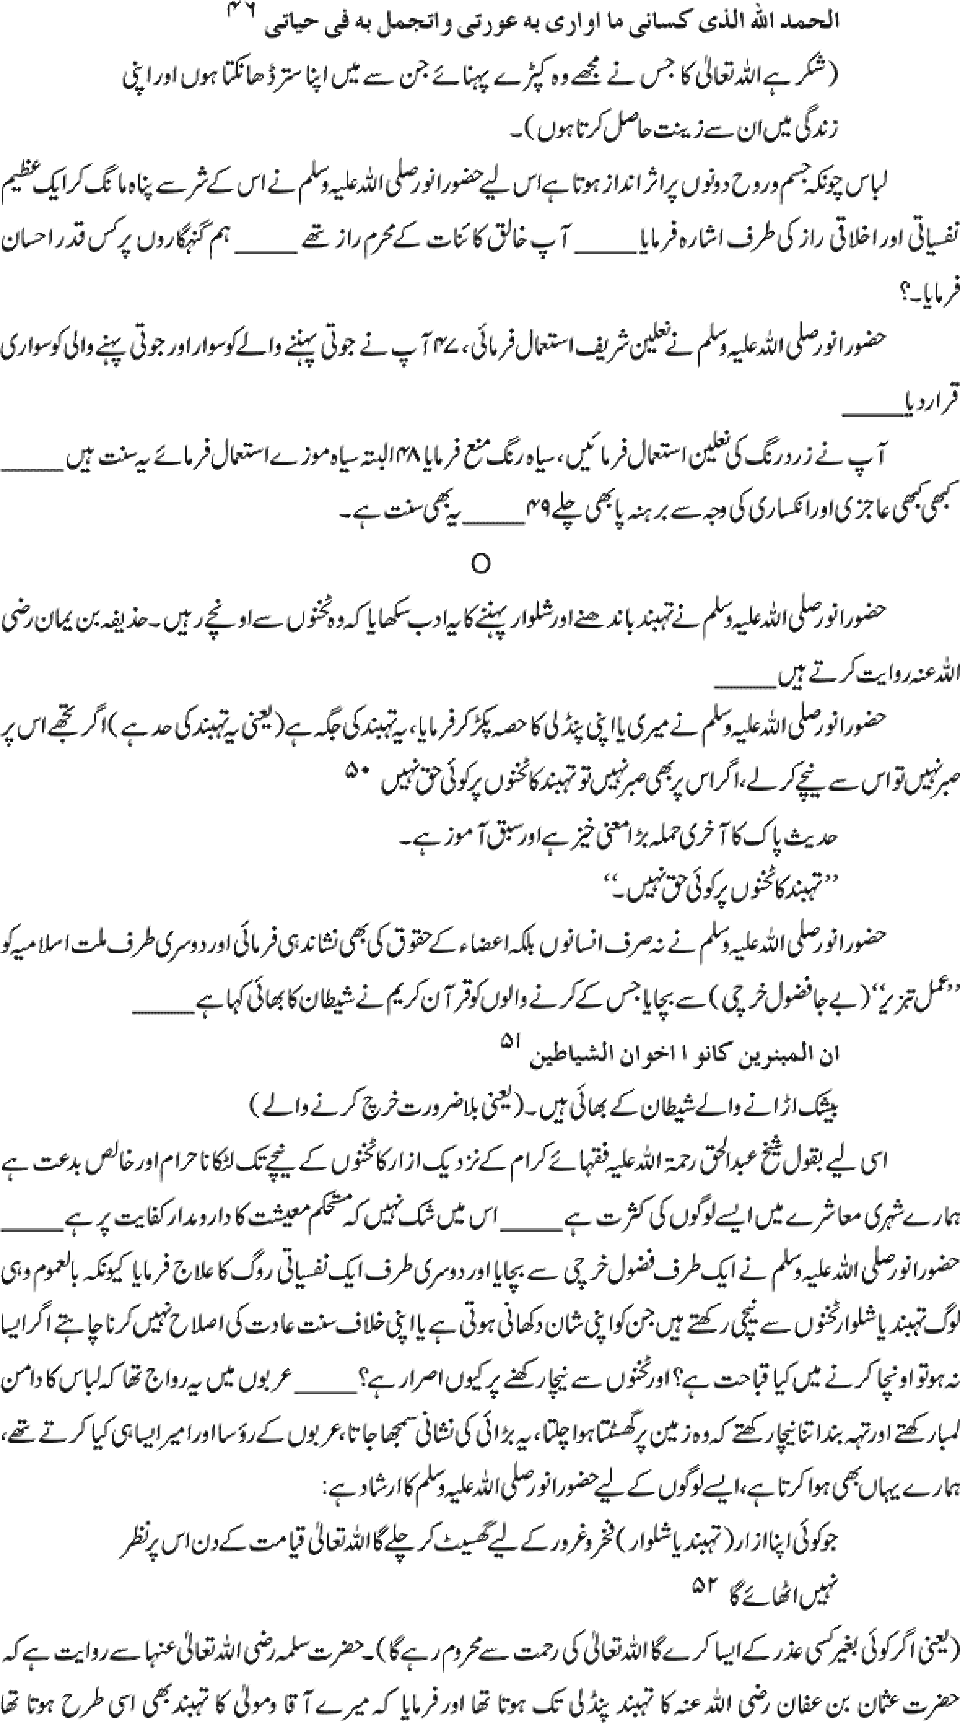 الحمد اللہ الذی کسانی ما اواری بہ عورتی واتجمل بہ فی حیاتی ۴۶
(شکر ہے اللہ تعالیٰ کا جس نے مجھے وہ کپڑے پہنائے جن سے میں اپنا ستر ڈھانکتا ہوں اور اپنی
زندگی میں ان سے زینت حاصل کرتا ہوں)۔
لباس چونکہ جسم و روح دونوں پر اثر انداز ہوتا ہے اس لیے حضور انور صلی اللہ علیہ وسلم نے اس کے شر سے پناہ مانگ کر ایک عظیم
نفسیاتی اور اخلاقی راز کی طرف اشارہ فرمایا_____ آپ خالق کائنات کے محرم راز تھے _____ ہم گنہگاروں پر کس قدر احسان
فرمایا۔؟
حضور انور صلی اللہ علیہ وسلم نے نعلین شریف استعمال فرمائی، ۴۷ آپ نے جوتی پہننے والے کو سوار اور جوتی پہنے والی کو سواری
قرار دیا_____
آپ نے زرد رنگ کی نعلین استعمال فرمائیں، سیاہ رنگ منع فرمایا ۴۸ البتہ سیاہ موزے استعمال فرمائے یہ سنت ہیں _____
کبھی کبھی عاجزی اور انکساری کی وجہ سے برہنہ پا بھی چلے ۴۹_____ یہ بھی سنت ہے۔
O
حضور انور صلی اللہ علیہ وسلم نے تہبند باندھنے اور شلوار پہننے کا یہ ادب سکھایا کہ وہ ٹخنوں سے اونچے رہیں۔ حذیفہ بن یمان رضی
اللہ عنہ روایت کرتے ہیں_____
حضور انور صلی اللہ علیہ وسلم نے میری یا اپنی پنڈلی کا حصہ پکڑ کر فرمایا، یہ تہبند کی جگہ ہے (یعنی یہ تہبند کی حد ہے) اگر تجھے اس پر
صبر نہیں تو اس سے نیچے کر لے، اگر اس پر بھی صبر نہیں تو تہبند کا ٹخنوں پر کوئی حق نہیں ۵۰
حدیث پاک کا آخری جملہ بڑا معنی خیز ہے اور سبق آموز ہے۔
’’تہبند کا ٹخنوں پر کوئی حق نہیں۔‘‘
حضور انور صلی اللہ علیہ وسلم نے نہ صرف انسانوں بلکہ اعضاء کے حقوق کی بھی نشاندہی فرمائی اور دوسری طرف ملت اسلامیہ کو
’’عمل تبزیر‘‘ (بے جا فضول خرچی) سے بچایا جس کے کرنے والوں کو قرآن کریم نے شیطان کا بھائی کہا ہے_____
ان المبنرین کانو ا اخوان الشیاطین ۵۱
بیشک اڑانے والے شیطان کے بھائی ہیں۔ (یعنی بلا ضرورت خرچ کرنے والے)
اسی لیے بقول شیخ عبدالحق رحمۃ اللہ علیہ فقہائے کرام کے نزدیک ازار کا ٹخنوں کے نیچے تک لٹکانا حرام اور خالص بدعت ہے
ہمارے شہری معاشرے میں ایسے لوگوں کی کثرت ہے_____ اس میں شک نہیں کہ مستحکم معیشت کا دارومدار کفایت پر ہے_____
حضور انور صلی اللہ علیہ وسلم نے ایک طرف فضول خرچی سے بچایا اور دوسری طرف ایک نفسیاتی روگ کا علاج فرمایا کیونکہ بالعموم وہی
لوگ تہبند یا شلوار ٹخنوں سے نیچی رکھتے ہیں جن کو اپنی شان دکھانی ہوتی ہے یا اپنی خلاف سنت عادت کی اصلاح نہیں کرنا چاہتے اگر ایسا
نہ ہو تو اونچا کرنے میں کیا قباحت ہے؟ اور ٹخنوں سے نیچا رکھنے پر کیوں اصرار ہے؟_____ عربوں میں یہ رواج تھا کہ لباس کا دامن
لمبا رکھتے اور تہہ بند اتنا نیچا رکھتے کہ وہ زمین پر گھسٹتا ہوا چلتا، یہ بڑائی کی نشانی سمجھا جاتا، عربوں کے رؤسا اور امیر ایسا ہی کیا کرتے تھے،
ہمارے یہاں بھی ہوا کرتا ہے، ایسے لوگوں کے لیے حضور انور صلی اللہ علیہ وسلم کا ارشاد ہے:
جو کوئی اپنا ازار (تہبند یا شلوار) فخر و غرور کے لیے گھسیٹ کر چلے گا اللہ تعالیٰ قیامت کے دن اس پر نظر
نہیں اٹھائے گا ۵۲
(یعنی اگر کوئی بغیر کسی عذر کے ایسا کرے گا اللہ تعالیٰ کی رحمت سے محروم رہے گا)۔ حضرت سلمہ رضی اللہ تعالیٰ عنہا سے روایت ہے کہ
حضرت عثمان بن عفان رضی اللہ عنہ کا تہبند پنڈلی تک ہوتا تھا اور فرمایا کہ میرے آقا و مولیٰ کا تہبند بھی اسی طرح ہوتا تھا